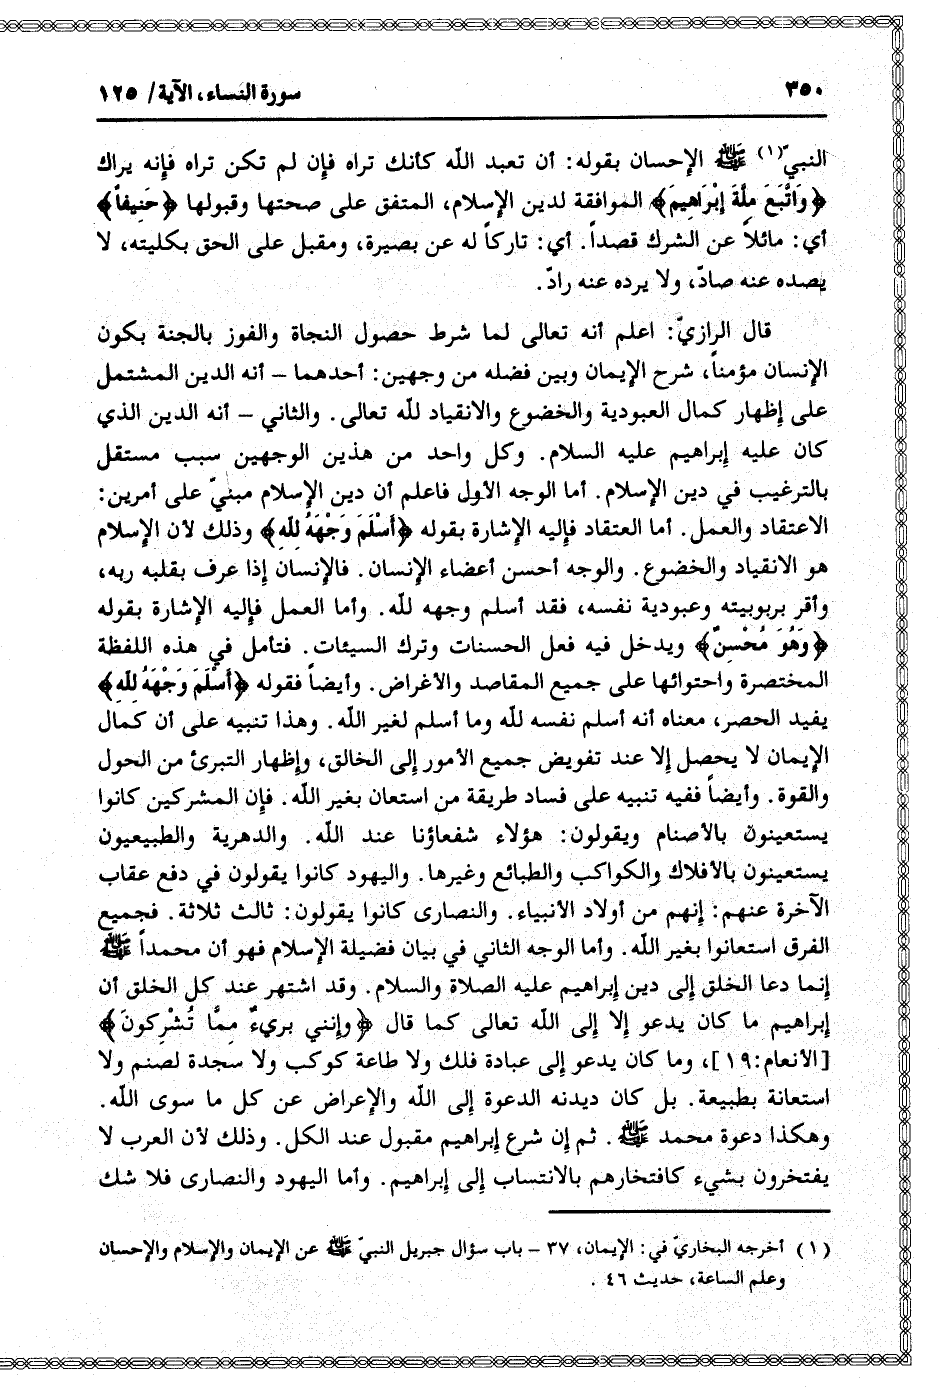 ٣٥٠ سورة النساء، الآية/ ١٢٥
النبيّ(١) ﷺ الإحسان بقوله: أن تعبد الله كأنك تراه فإن لم تكن تراه فإنه يراك
﴿وَاتَّبَعَ مِلَّةَ إِبْرَاهِيمَ﴾ الموافقة لدين الإسلام، المتفق على صحتها وقبولها ﴿حَنِيفاً﴾
أي: مائلاً عن الشرك قصداً. أي: تاركاً له عن بصيرة، ومقبل على الحق بكليته، لا
يصده عنه صادّ، ولا يرده عنه رادّ.
قال الرازيّ: اعلم أنه تعالى لما شرط حصول النجاة والفوز بالجنة بكون
الإنسان مؤمناً، شرح الإيمان وبين فضله من وجهين: أحدهما – أنه الدين المشتمل
على إظهار كمال العبودية والخضوع والانقياد لله تعالى. والثاني – أنه الدين الذي
كان عليه إبراهيم عليه السلام. وكل واحد من هذين الوجهين سبب مستقل
بالترغيب في دين الإسلام. أما الوجه الأول فاعلم أن دين الإسلام مبنيّ على أمرين:
الاعتقاد والعمل. أما العتقاد فإليه الإشارة بقوله ﴿أَسْلَمَ وَجْهَهُ لِلّهِ﴾ وذلك لأن الإسلام
هو الانقياد والخضوع. والوجه أحسن أعضاء الإنسان. فالإنسان إذا عرف بقلبه ربه،
وأقر بربوبيته وعبودية نفسه، فقد أسلم وجهه لله. وأما العمل فإليه الإشارة بقوله
﴿وَهُوَ مُحْسِنٌ﴾ ويدخل فيه فعل الحسنات وترك السيئات. فتأمل في هذه اللفظة
المختصرة واحتوائها على جميع المقاصد والأغراض. وأيضاً فقوله ﴿أَسْلَمَ وَجْهَهُ لِلّهِ﴾
يفيد الحصر، معناه أنه أسلم نفسه لله وما أسلم لغير الله. وهذا تنبيه على أن كمال
الإيمان لا يحصل إلا عند تفويض جميع الأمور إلى الخالق، وإظهار التبرئ من الحول
والقوة. وأيضاً ففيه تنبيه على فساد طريقة من استعان بغير الله. فإن المشركين كانوا
يستعينون بالأصنام ويقولون: هؤلاء شفعاؤنا عند الله. والدهرية والطبيعيون
يستعينون بالأفلاك والكواكب والطبائع وغيرها. واليهود كانوا يقولون في دفع عقاب
الآخرة عنهم: إنهم من أولاد الأنبياء. والنصارى كانوا يقولون: ثالث ثلاثة. فجميع
الفرق استعانوا بغير الله. وأما الوجه الثاني في بيان فضيلة الإسلام فهو أن محمداً ﷺ
إنما دعا الخلق إلى دين إبراهيم عليه الصلاة والسلام. وقد اشتهر عند كل الخلق أن
إبراهيم ما كان يدعو إلا إلى الله تعالى كما قال ﴿وإنني بريءٌ مِمَّا تُشْرِكونَ﴾
[الأنعام:١٩]، وما كان يدعو إلى عبادة فلك ولا طاعة كوكب ولا سجدة لصنم ولا
استعانة بطبيعة. بل كان ديدنه الدعوة إلى الله والإعراض عن كل ما سوى الله.
وهكذا دعوة محمد ﷺ. ثم إن شرع إبراهيم مقبول عند الكل. وذلك لأن العرب لا
يفتخرون بشيء كافتخارهم بالانتساب إلى إبراهيم. وأما اليهود والنصارى فلا شك
(١) أخرجه البخاريّ في: الإيمان، ٣٧ – باب سؤال جبريل النبيّ ﷺ عن الإيمان والإسلام والإحسان
وعلم الساعة، حديث ٤٦.